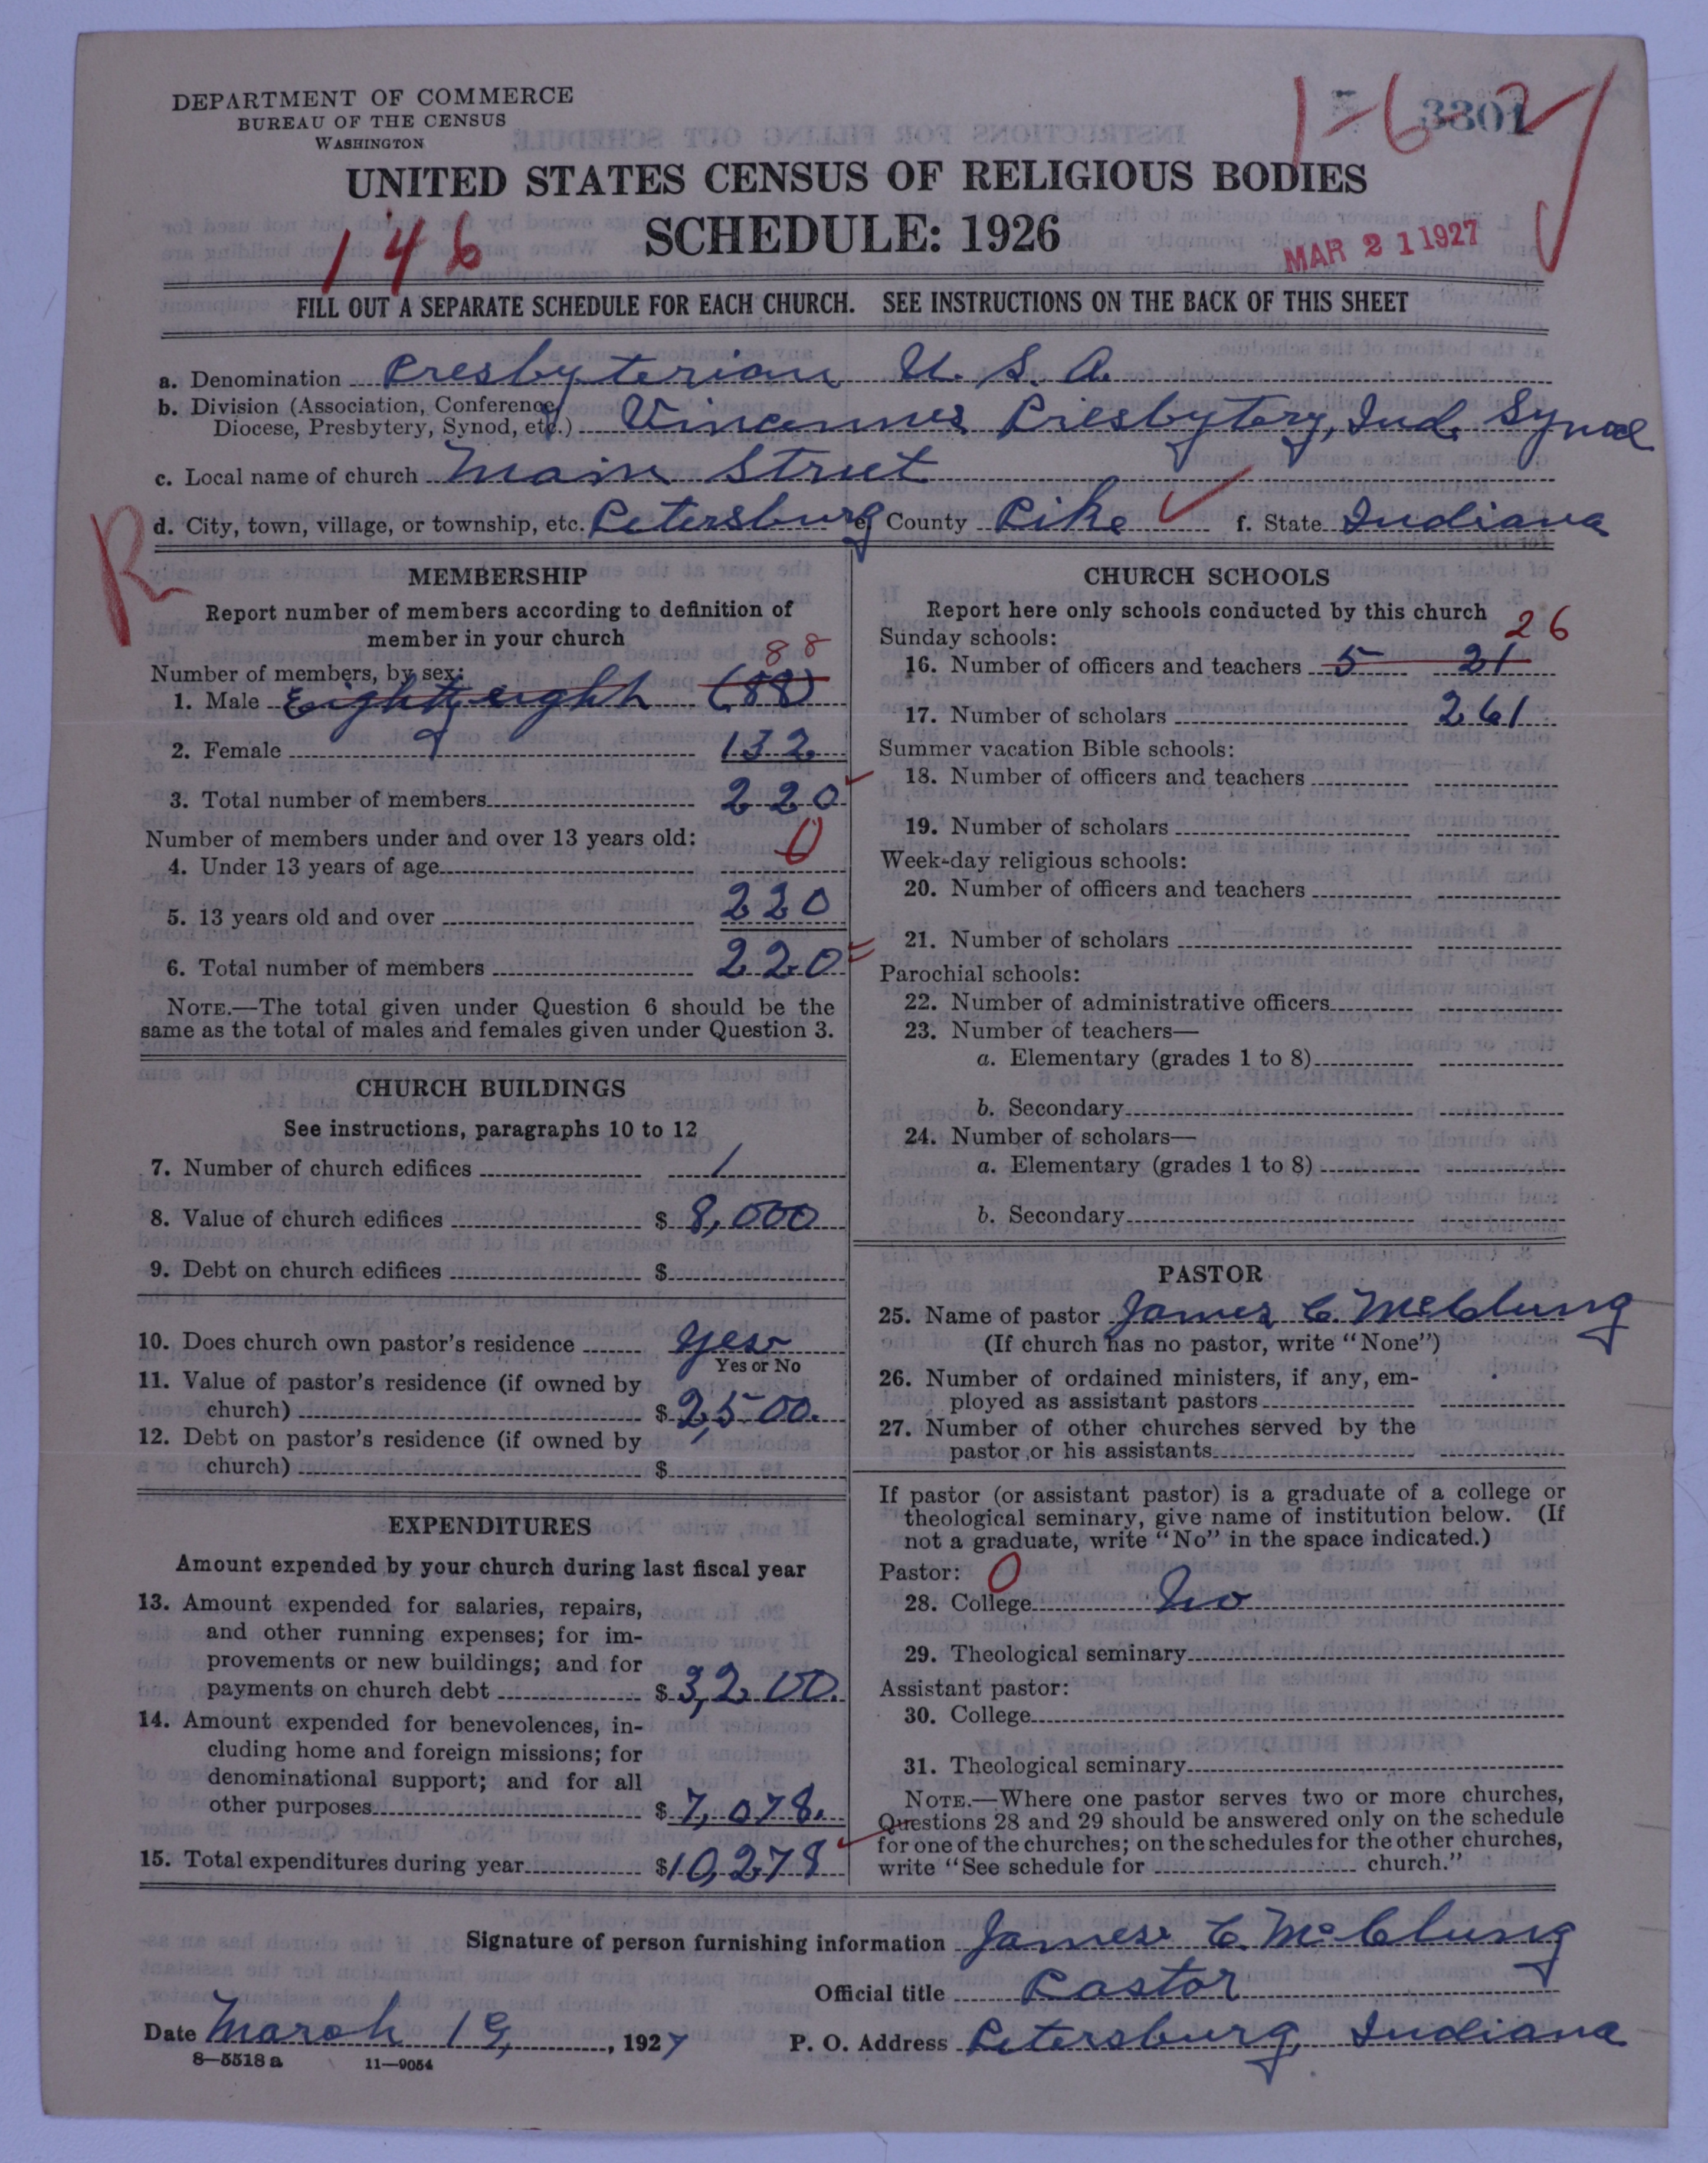 DEPARTMENT OF COMMERCE
BUREAU OF THE CENSUS
WASHINGTON
1-6-2
3801
UNITED STATES CENSUS OF RELIGIOUS BODIES
146
SCHEDULE: 1926
MAR 21 1927
FILL OUT A SEPARATE SCHEDULE FOR EACH CHURCH. SEE INSTRUCTIONS ON THE BACK OF THIS SHEET
a. Denomination Presbyterian U. S. A.
b. Division (Association, Conference, Diocese, Presbytery, Synod, etc.) Vincennes Presbytery, Ind. Synod
c. Local name of church Main Street
d. City, town, village, or township, etc. Petersburg e. County Pike f. State Indiana
R
MEMBERSHIP
Report number of members according to definition of
member in your church
88
Number of members, by sex:
1. Male Eighty eight (88)
2. Female 132
3. Total number of members 220
Number of members under and over 13 years old:
4. Under 13 years of age 0
5. 13 years old and over 220
6. Total number of members 220
NOTE.—The total given under Question 6 should be the
same as the total of males and females given under Question 3.
CHURCH BUILDINGS
See instructions, paragraphs 10 to 12
7. Number of church edifices 1
8. Value of church edifices $ 8,000
9. Debt on church edifices $
10. Does church own pastor's residence yes
Yes or No
11. Value of pastor's residence (if owned by
church) $ 2,500.
12. Debt on pastor's residence (if owned by
church) $
EXPENDITURES
Amount expended by your church during last fiscal year
13. Amount expended for salaries, repairs,
and other running expenses; for im-
provements or new buildings; and for
payments on church debt $ 3,200.
14. Amount expended for benevolences, in-
cluding home and foreign missions; for
denominational support; and for all
other purposes $ 7,078.
15. Total expenditures during year $10,278
CHURCH SCHOOLS
Report here only schools conducted by this church
26
Sunday schools:
16. Number of officers and teachers 5 21
17. Number of scholars 261
Summer vacation Bible schools:
18. Number of officers and teachers
19. Number of scholars
Week-day religious schools:
20. Number of officers and teachers
21. Number of scholars
Parochial schools:
22. Number of administrative officers
23. Number of teachers—
a. Elementary (grades 1 to 8)
b. Secondary
24. Number of scholars—
a. Elementary (grades 1 to 8)
b. Secondary
PASTOR
25. Name of pastor James C. McClung
(If church has no pastor, write "None")
26. Number of ordained ministers, if any, em-
ployed as assistant pastors
27. Number of other churches served by the
pastor or his assistants
If pastor (or assistant pastor) is a graduate of a college or
theological seminary, give name of institution below. (If
not a graduate, write "No" in the space indicated.)
Pastor: 0
28. College No
29. Theological seminary
Assistant pastor:
30. College
31. Theological seminary
NOTE.—Where one pastor serves two or more churches,
Questions 28 and 29 should be answered only on the schedule
for one of the churches; on the schedules for the other churches,
write "See schedule for church."
Signature of person furnishing information James C. McClung
Official title Pastor
Date March 19, 1927 P. O. Address Petersburg, Indiana
8—5518a 11—9054